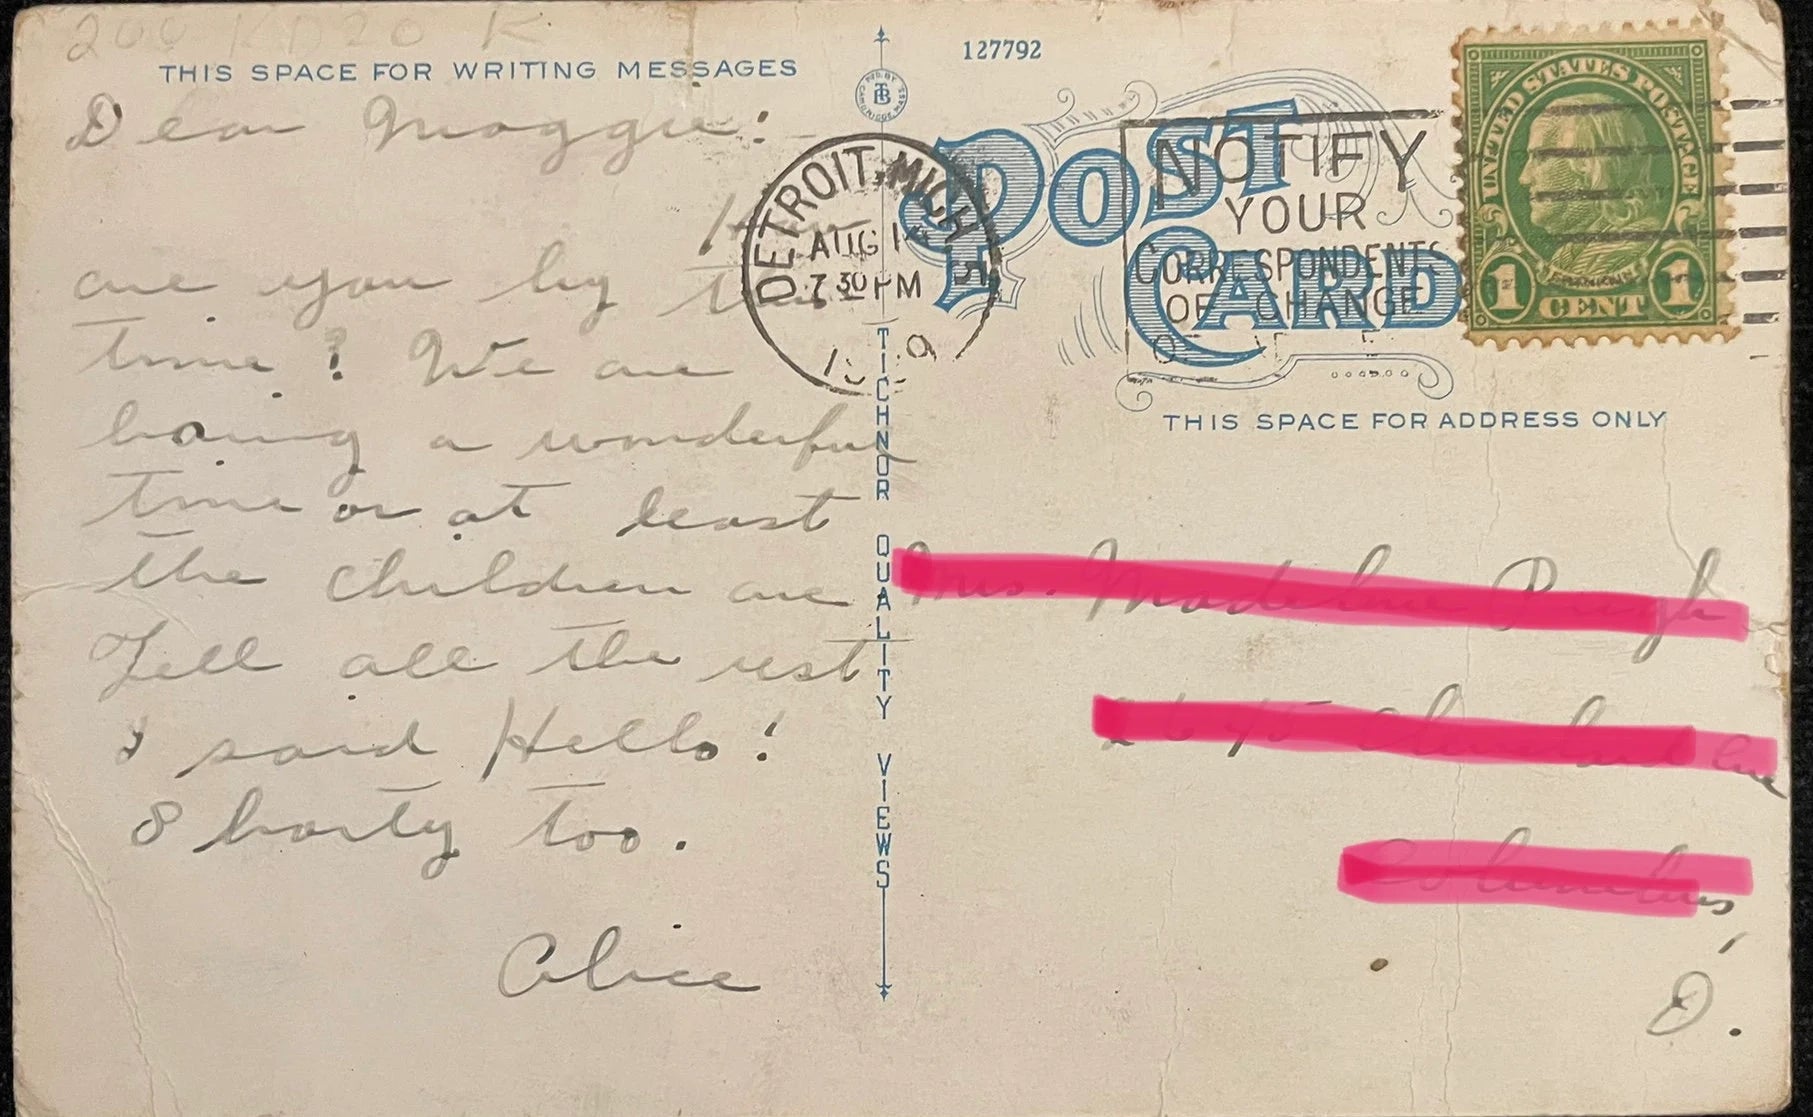 THIS SPACE FOR WRITING MESSAGES
Dear Maggie:
How
are you by this
time? We are
having a wonderful
time or at least
the children are
Tell all the rest
I said Hello!
Shorty too.
Alice
TICHNOR QUALITY VIEWS
127792
POST CARD
DETROIT, MICH
AUG 14
7 30 PM
NOTIFY
YOUR
CORRESPONDENTS
OF CHANGE
UNITED STATES POSTAGE
FRANKLIN
1 CENT 1
THIS SPACE FOR ADDRESS ONLY
Mrs. Madeline Pugh
Cleveland Ave
Columbus,
O.